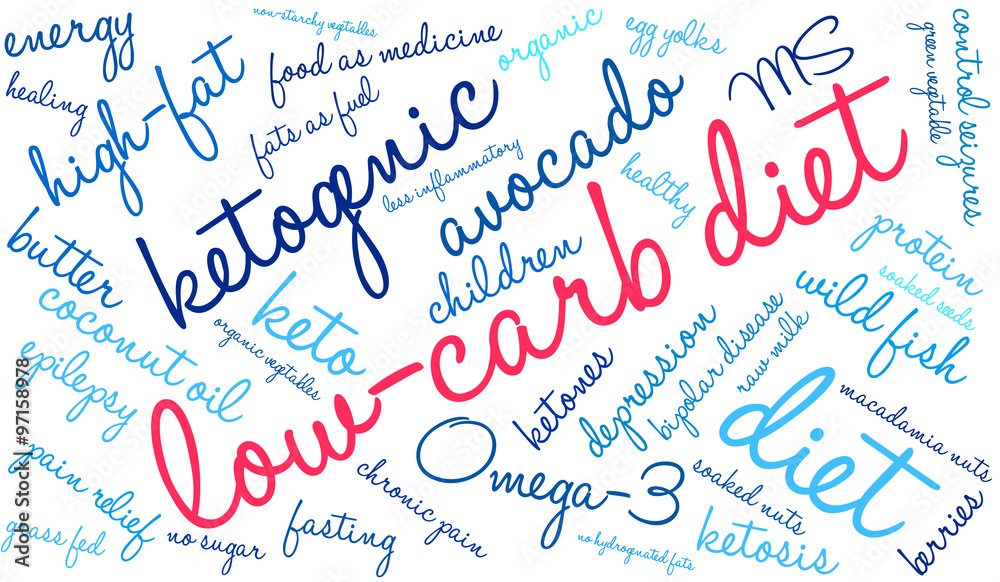 energy
non-starchy vegetables
food as medicine
organic
egg yolks
MS
control seizures
green vegetable
healing
high-fat
fats as fuel
ketogenic
less inflammatory
avocado
healthy
low-carb diet
butter
children
protein
soaked seeds
wild fish
coconut oil
keto
organic vegetables
epilepsy
ketones
depression
bipolar disease
raw milk
diet
macadamia nuts
Omega-3
pain relief
chronic pain
soaked nuts
berries
grass fed
no sugar
fasting
no hydrognated fats
ketosis
Adobe Stock | #97158978